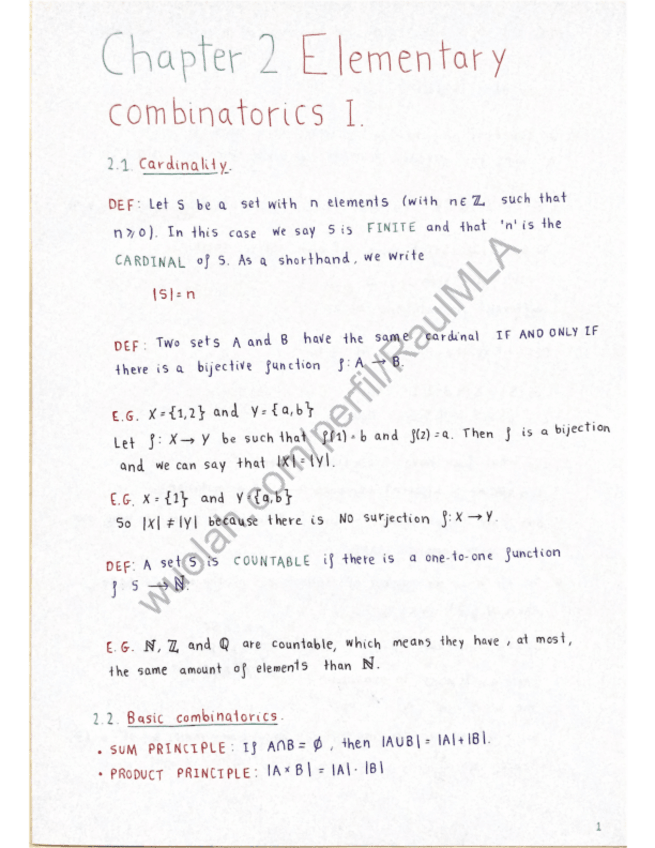 Chapter 2 Elementary
combinatorics I.
2.1. Cardinality.
DEF: Let S be a set with n elements (with n∈ℤ such that
n⩾0). In this case we say S is FINITE and that 'n' is the
CARDINAL of S. As a shorthand, we write
|S|=n
DEF: Two sets A and B have the same cardinal IF AND ONLY IF
there is a bijective function f: A → B.
E.G. X={1,2} and Y={a,b}
Let f: X→Y be such that f(1)=b and f(2)=a. Then f is a bijection
and we can say that |X|=|Y|.
E.G. X={1} and Y={a,b}
So |X|≠|Y| because there is NO surjection f: X→Y.
DEF: A set S is COUNTABLE if there is a one-to-one function
f: S → ℕ.
E.G. ℕ, ℤ and ℚ are countable, which means they have, at most,
the same amount of elements than ℕ.
2.2. Basic combinatorics.
• SUM PRINCIPLE: If A∩B=∅, then |A∪B|=|A|+|B|.
• PRODUCT PRINCIPLE: |A×B|=|A|·|B|
1
wuolah.com/perfil/RaulMLA